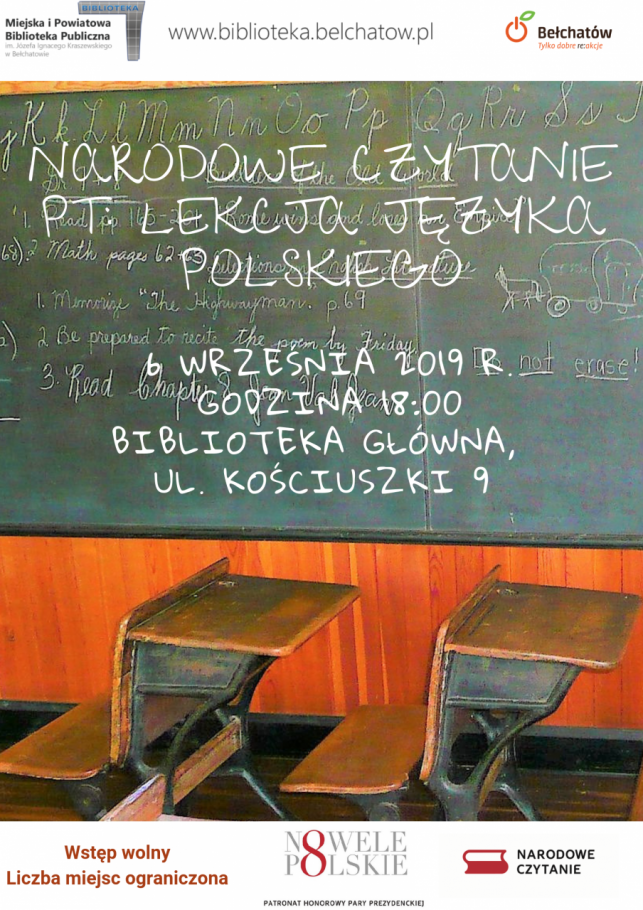 BIBLIOTEKA
Miejska i Powiatowa
Biblioteka Publiczna
im. Józefa Ignacego Kraszewskiego
w Bełchatowie
www.biblioteka.belchatow.pl
Bełchatów
Tylko dobre re:akcje
j K k L l M m N n O o P p Q q R r S s T
NARODOWE CZYTANIE
PT. LEKCJA JĘZYKA
POLSKIEGO
1. Read pp. 165-201
2. Math pages 62+63 Selections in English Literature
1. Memorize "The Highwayman. p.69
2. Be prepared to recite the poem by Friday
Do not erase!
3. Read Chapter
6 WRZEŚNIA 2019 R.
GODZINA 18:00
BIBLIOTEKA GŁÓWNA,
UL. KOŚCIUSZKI 9
Wstęp wolny
Liczba miejsc ograniczona
N8WELE
P8LSKIE
PATRONAT HONOROWY PARY PREZYDENCKIEJ
NARODOWE
CZYTANIE